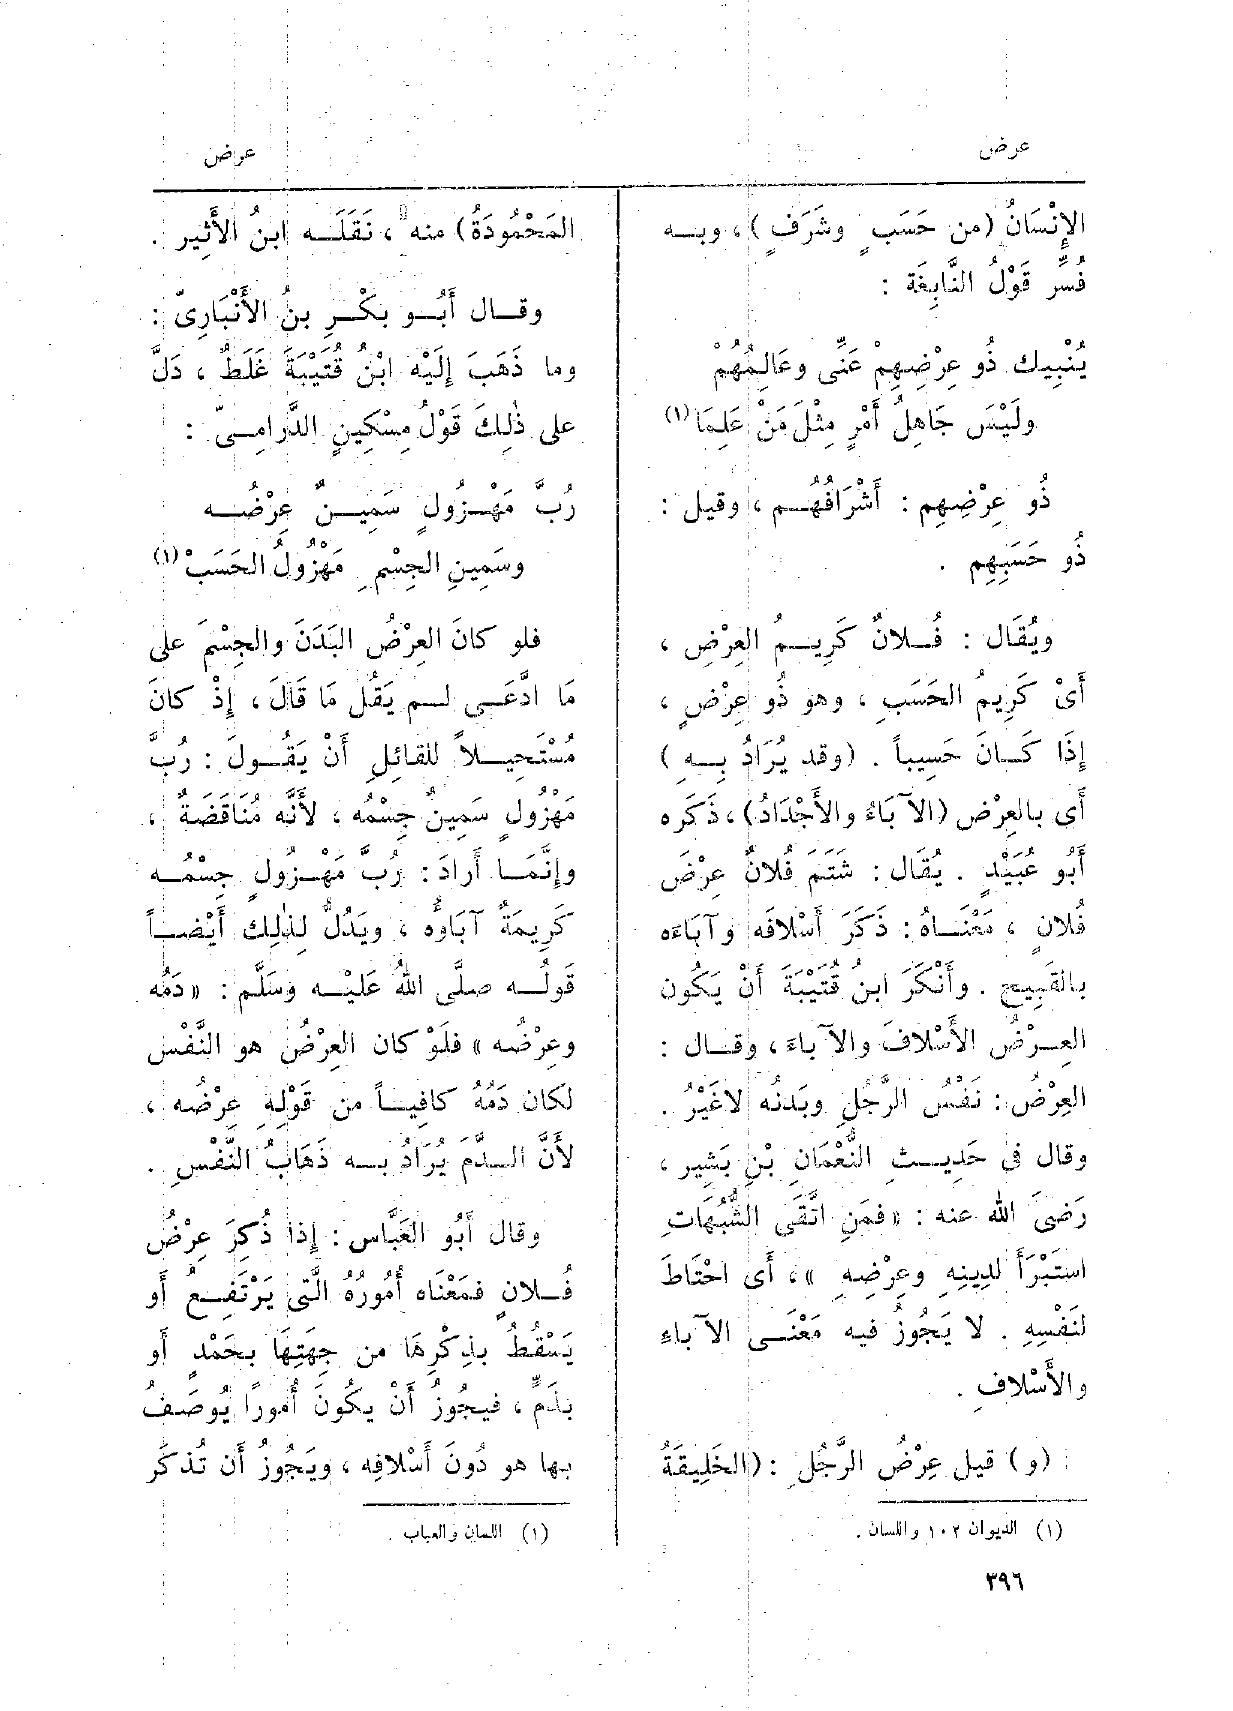 عرض
عرض
الإِنْسَانُ (من حَسَبٍ وشَرَفٍ)، وبـه
فُسِّر قَوْلُ النَّابِغَة :
يُنْبِيك ذُو عِرْضِهِمْ عَنِّى وعَالِمُهُمْ
ولَيْسَ جَاهِلُ أَمْرٍ مِثْلَ مَنْ عَلِمَا (١)
ذُو عِرْضِهِم : أَشْرَافُهُـم ، وقيل :
ذُو حَسَبِهِم .
ويُقَال : فُـلانٌ كَرِيـمُ العِرْضِ ،
أَىْ كَرِيمُ الحَسَبِ ، وهو ذُو عِرْضٍ ،
إِذَا كَـانَ حَسِيباً . (وقد يُرَادُ بِـهِ)
أَى بالعِرْض (الآبَاءُ والأَجْدَادُ)، ذَكَره
أَبُو عُبَيْدٍ . يُقَال : شَتَمَ فُلانٌ عِرْضَ
فُلانٍ ، مَعْنَـاهُ : ذَكَرَ أَسْلافَه وآبَاءَه
بالقَبِيح . وأَنْكَرَ ابنُ قُتَيْبَةَ أَنْ يَكُون
العِـرْضُ الأَسْلافَ والآباءَ ، وقـال :
العِرْضُ : نَفْسُ الرَّجُلِ وبَدَنُه لاغَيْرُ .
وقال فى حَدِيـث النُّعْمَانِ بْنِ بَشِير ،
رَضىَ الله عنه : « فمَنِ اتَّقَى الشُّبُهَاتِ
استَبْرَأَ لدِينِهِ وعِرْضِهِ » ، أَى احْتَاطَ
لنَفْسِهِ . لا يَجُوزُ فيه مَعْنَـى الآباءِ
والأَسْلافِ .
(و) قيل عِرْضُ الرَّجُلِ : (الخَلِيقَةُ
(١) الديوان ١٠٢ واللسان .
المَحْمُودَةُ) منه ، نَقَلَـه ابنُ الأَثِير .
وقـال أَبُـو بكْـرِ بنُ الأَنْبَارِىّ :
وما ذَهَبَ إِلَيْه ابْنُ قُتَيْبَةَ غَلَطٌ ، دَلَّ
على ذٰلِكَ قَوْلُ مِسْكِينٍ الدَّرامِـىّ :
رُبَّ مَهْـزُولٍ سَمِيـنٌ عِرْضُـه
وسَمِينِ الجِسْمِ مَهْزُولُ الحَسَبْ (١)
فلو كانَ العِرْضُ البَدَنَ والجِسْمَ على
مَا ادَّعَـى لـم يَقُل مَا قَالَ ، إِذْ كانَ
مُسْتَحِيـلاً للقائِلِ أَنْ يَقُـولَ : رُبَّ
مَهْزُولٍ سَمِينٌ جِسْمُه ، لأَنَّه مُنَاقَضَةٌ ،
وإِنَّمَـا أَرادَ : رُبَّ مَهْـزُولٍ جِسْمُـه
كَرِيمَةٌ آبَاؤُه ، ويَدُلُّ لذٰلِك أَيْضـاً
قَولُـه صلَّى اللهُ عَلَيْـه وَسَلَّم : « دَمُه
وعِرْضُه » فلَوْ كان العِرْضُ هو النَّفْس
لكَان دَمُهُ كافِيـاً من قَوْلِهِ عِرْضُه ،
لأَنَّ الـدَّمَ يُرَادُ بـه ذَهَابُ النَّفْسِ .
وقال أَبُو العَبَّاس : إِذا ذُكِرَ عِرْضُ
فُـلانٍ فمَعْنَاه أُمُورُهُ الَّتى يَرْتَفِـعُ أَو
يَسْقُطُ بذِكْرِهَا من جِهَتِهَا بحَمْدٍ أَو
بذَمٍّ ، فيجُوزُ أَنْ يكُونَ أُمورًا يُوصَفُ
بها هو دُونَ أَسْلافِه ، ويَجُوزُ أَن تُذكَر
(١) اللسان والعباب .
٣٩٦